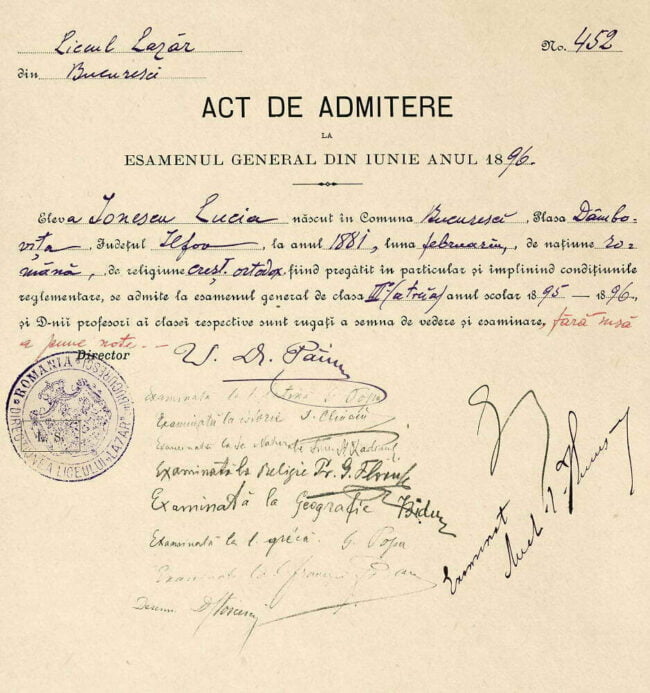 Liceul Lazăr No. 452
din Bucuresci
ACT DE ADMITERE
LA
ESAMENUL GENERAL DIN IUNIE ANUL 1896.
Eleva Ionescu Lucia născut în Comuna Bucuresci, Plasa Dâmbo-
vița, Județul Ilfov, la anul 1881, luna februariu, de națiune ro-
mână, de religiune creșt. ortodox, fiind pregătit în particular și împlinind condițiunile
reglementare, se admite la esamenul general de clasa III (a treia) anul scolar 1895 — 1896,
și D-nii profesori ai clasei respective sunt rugați a semna de vedere și esaminare, fără însă
a pune note. —
Director
ROMANIA
DIRECȚIUNEA LICEULUI LAZAR BUCURESCI
L. S.
Examinata la l. latină G. Popa
Examinată la istorie
Examinată la Sc. Naturale
Examinată la Religie Pr. G.
Examinată la Geografie
Examinată la l. grécă G. Popa
Examinată la l. franceză
Desemn
Examinat